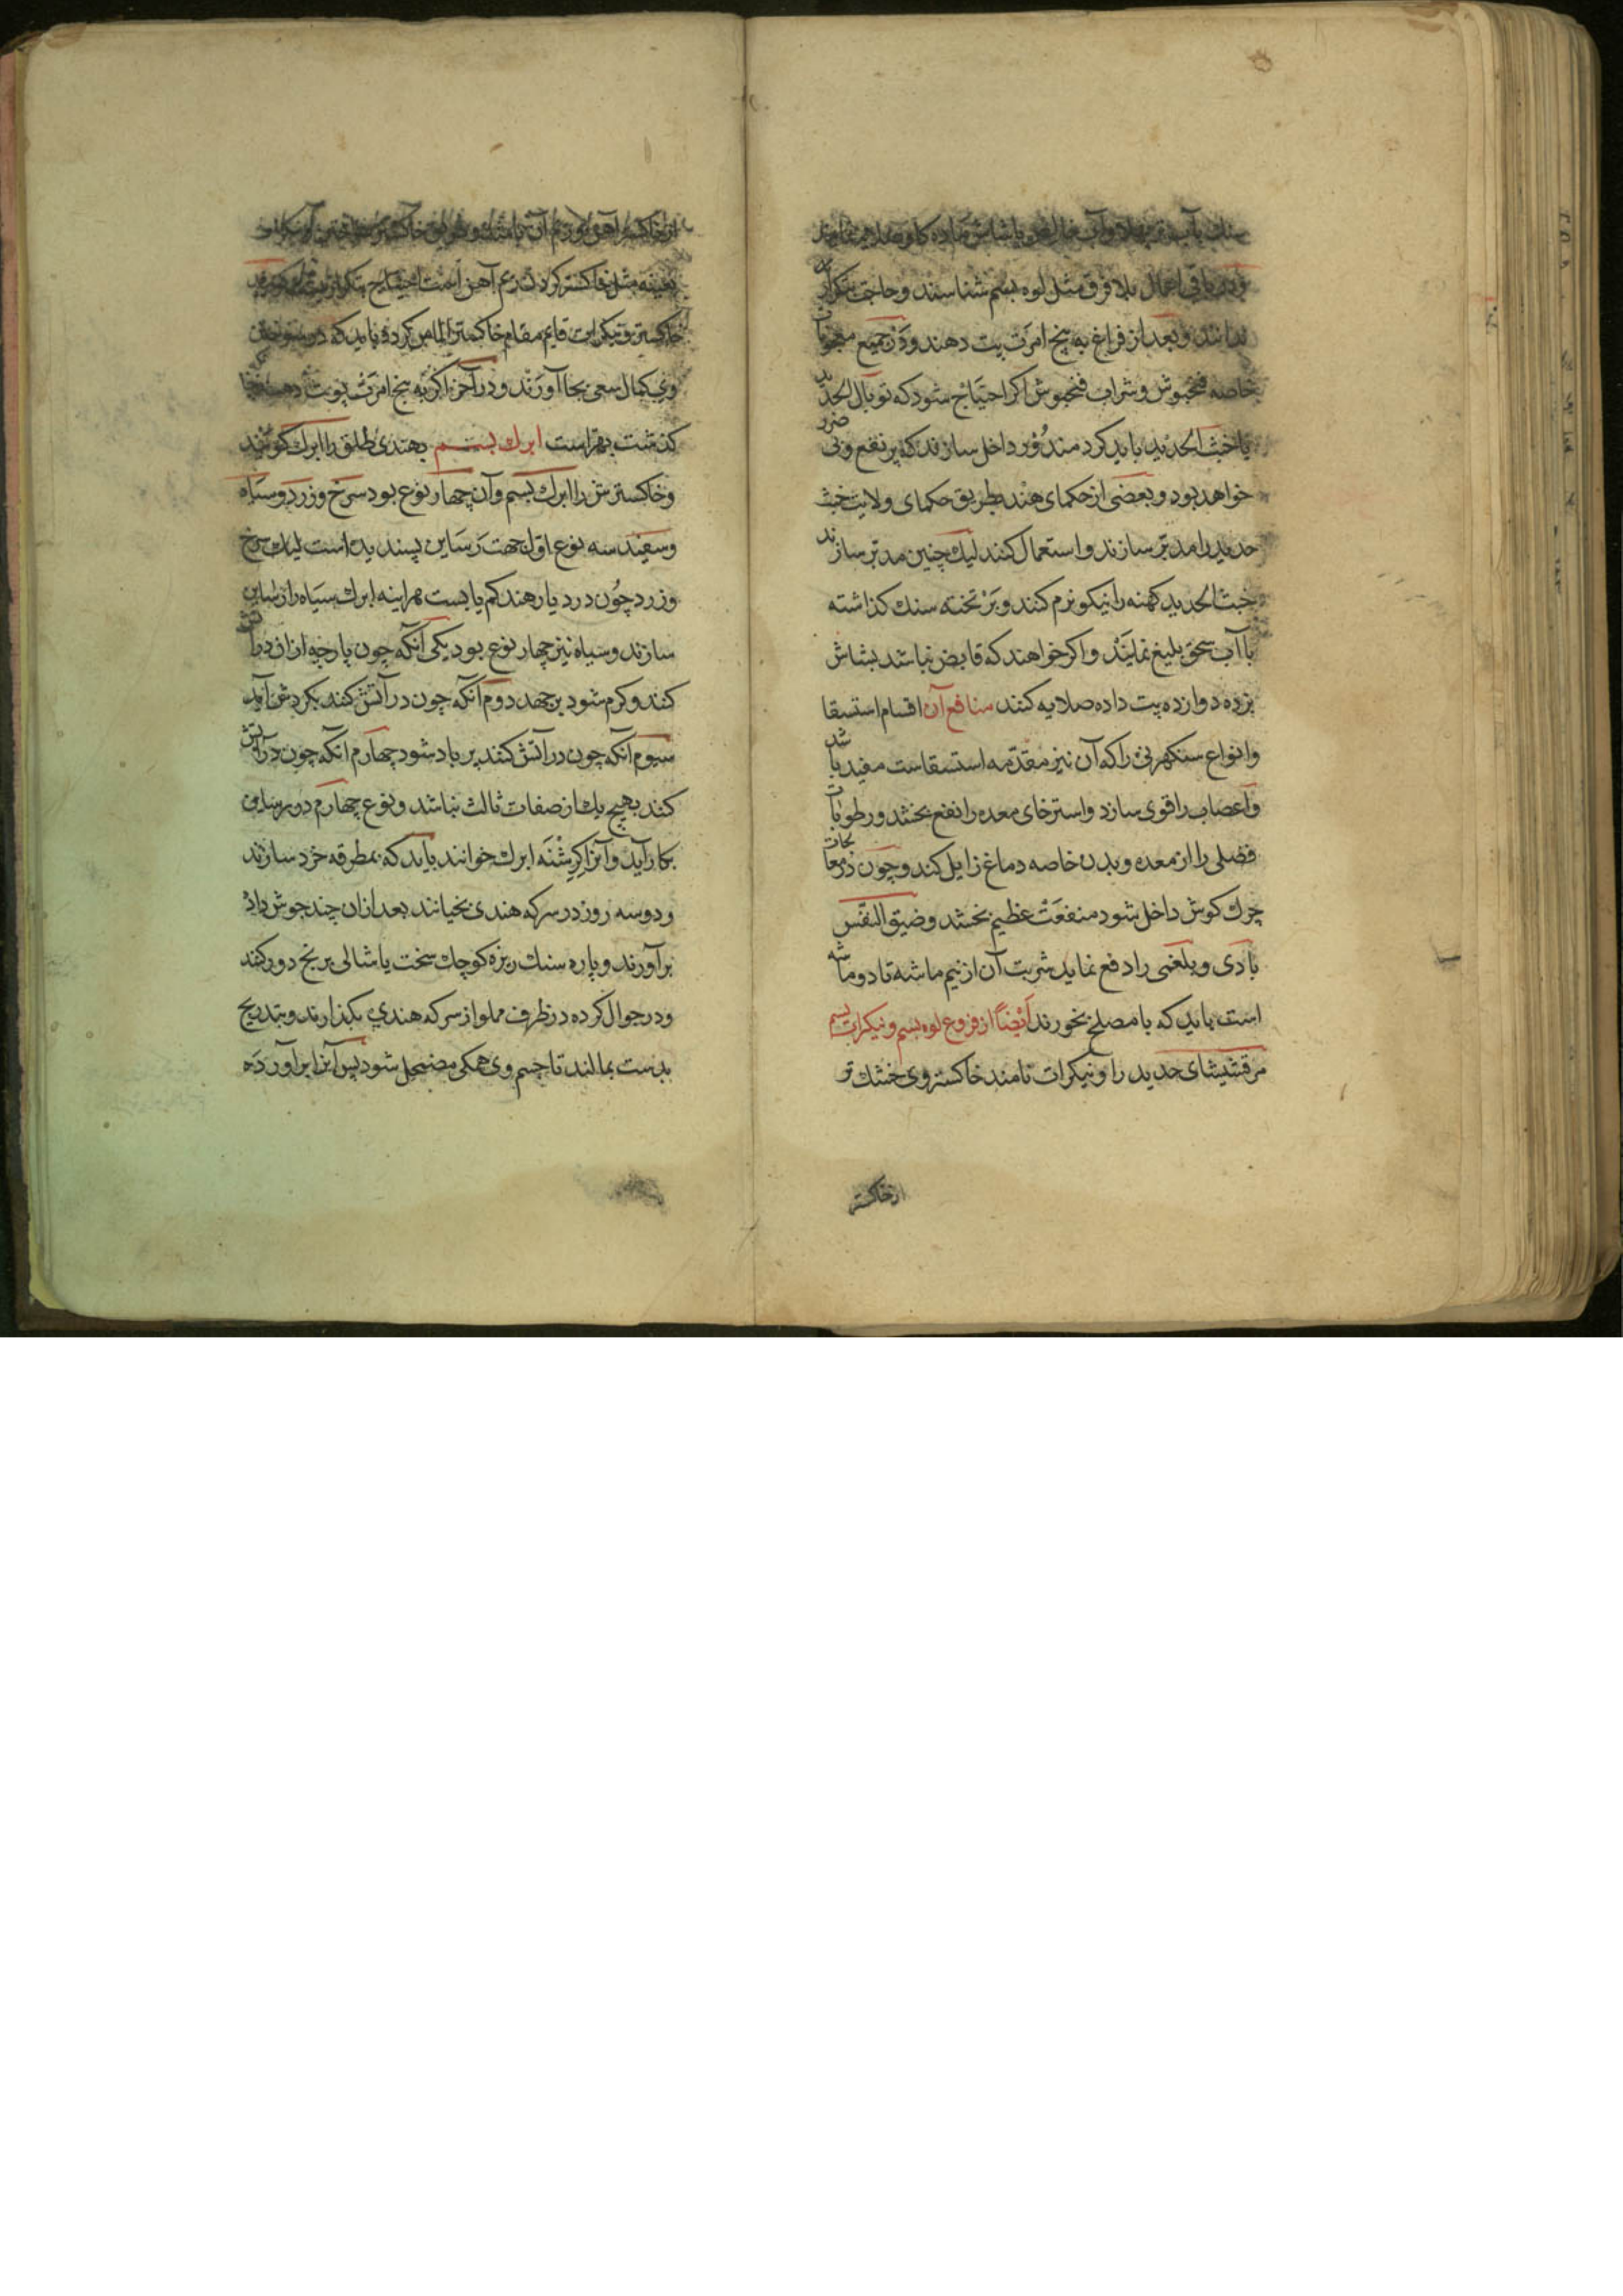 و در باقی اعمال بلا فرق مثل لوه بسم شناسند و حاجت بتکرار
ندانند و بعد از فراغ به پنج امرت پت دهند و در جمیع معجونات
خاصه فنجنوش و شراب فنجنوش اکر احتیاج شود که توبال الحدید
یا خبث الحدید باید کرد مندور داخل سازند که پر نفع و بی ضرر
خواهد بود و بعضی از حکمای هند بطریق حکمای ولایت خبث
حدید را مدبر سازند و استعمال کنند لیک چنین مدبر سازند
خبث الحدید کهنه را نیکو نرم کنند و بر تخته سنك کذاشته
با آب سحق بلیغ نمایند و اکر خواهند که قابض نباشد بشاش
بزده دوازده پت داده صلایه کنند منافع آن اقسام استسقا
و انواع سنکهرنی را که آن نیز مقدمه استسقاست مفید باشد
و اعصاب را قوی سازد و استرخای معده را نفع بخشد و رطوبات
فضلی را از معده و بدن خاصه دماغ زایل کند و چون در معالجات
چرك کوش داخل شود منفعت عظیم بخشد و ضیق النفس
بادی و بلغمی را دفع نماید شربت آن از نیم ماشه تا دو ماشه
است باید که با مصلح بخورند ایضاً از فروع لوه بسم ونیکرات بسم
مرقشیشای حدید را ونیکرات نامند خاکستر وی خشك تر
از خاکستر
از خاکستر آهن
بعینه مثل خاکستر کردن آهن است
خاکستر ونیکرات قایم مقام خاکستر الماس کرده باید که در سوختن
وی کمال سعی بجا آورند و در آخر اکر به پنج امرت پوت دهند
کذشت بهتر است ابرك بسم بهندی طلق را ابرك کویند
و خاکسترش را ابرك بسم و آن چهار نوع بود سرخ و زرد و سیاه
و سفید سه نوع اول جهت رساین پسندیده است لیك سرخ
و زرد چون در دیار هند کم یابست هراینه ابرك سیاه را رساین
سازند و سیاه نیز چهار نوع بود یکی آنکه چون پارچه از ان در آتش
کنند و کرم شود برجهد دوم آنکه چون در آتش کنند بکردش آید
سیوم آنکه چون در آتش کنند پر باد شود چهارم آنکه چون در آتش
کنند بهیچ یك از صفات ثالث نباشد و نوع چهارم در رساین
بکار آید و آنرا کرشنه ابرك خوانند باید که بمطرقه خرد سازند
و دو سه روز در سرکه هندی بخیسانند بعد از ان چند جوش داده
برآورند و پاره سنك ریزه کوچك سخت یا شالی برنج دور کنند
و در جوال کرده در ظرف مملو از سرکه هندی بکذارند و بتدریج
بدست بمالند تا جسم وی همکی مضمحل شود پس آنرا برآورده